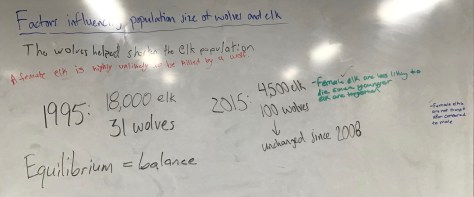 Factors influencing population size of wolves and elk
The wolves helped shorten the elk population
A female elk is highly unlikely to be killed by a wolf.
1995: 18,000 elk
31 wolves
2015: 4500 elk
100 wolves
↓
unchanged since 2008
-Female elk are less likely to
die since younger
elk are
-Female elks
are not
compared
to male
Equilibrium = balance